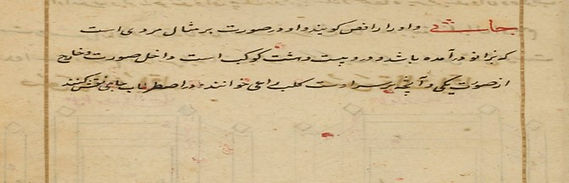 جاثی و او را راقص کویند و او در صورت بر مثال مردی است
که بزانو درآمده باشد و در و بیست و هشت کوکب است داخل صورت و خارج
از صورت یکی و آنچه بر سر اوست کلب راعی خوانند و در اصطرلاب بجای نقش کنند